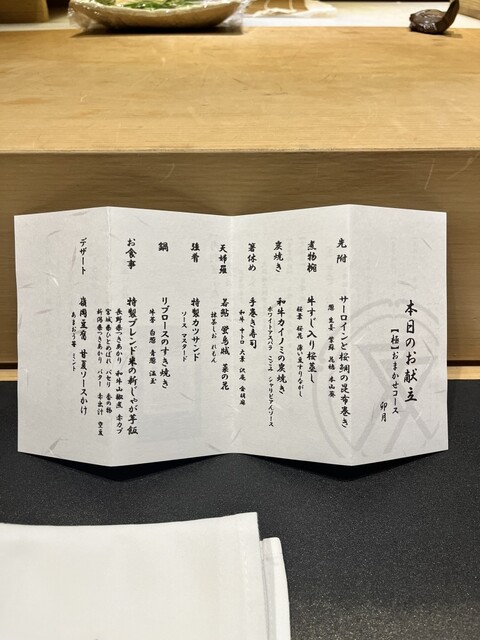 本日のお献立
【極】おまかせコース
卯月
先附
サーロインと桜鯛の昆布巻き
煮物椀
牛すじ入り桜蒸し
桜葉 桜花 薄い豆すりながし
炭焼き
和牛カイノミの炭焼き
ホワイトアスパラ こごみ シャリアピンソース
箸休め
手巻き寿司
和牛 中トロ 大葉 沢庵 金胡麻
天婦羅
若鮎 蛍烏賊 菜の花
抹茶しお れもん
強肴
特製カツサンド
ソース マスタード
鍋
リブロースのすき焼き
牛蒡 白葱 青葱 温玉
お食事
特製ブレンド米の新じゃが芋飯
長野県つきあかり 和牛山椒煮 赤カブ
宮城県ひとめぼれ パセリ 香の物
新潟県つきあかり バタ 赤出汁 空豆
デザート
嶺岡豆腐 甘夏ソースかけ
あまおう苺 ミント